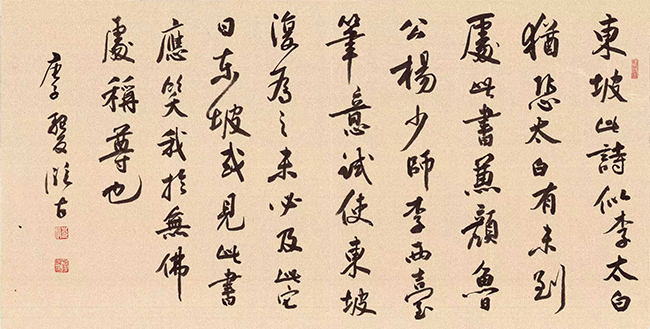 東坡此詩似李太白
猶恐太白有未到
處此書兼顏魯
公楊少師李西臺
筆意試使東坡
復為之未必及此它
日東坡或見此書
應笑我於無佛
處稱尊也
庚子